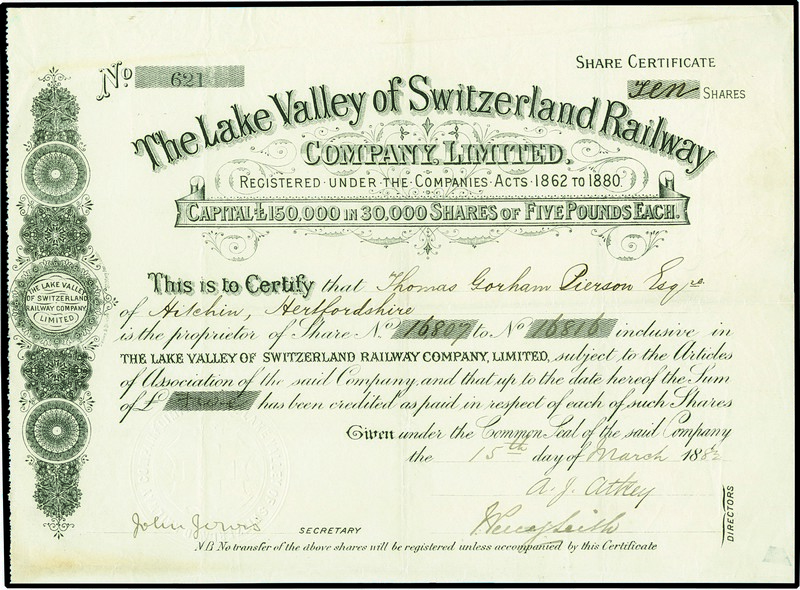 No 621
SHARE CERTIFICATE
Ten SHARES
The Lake Valley of Switzerland Railway
COMPANY, LIMITED.
REGISTERED UNDER THE COMPANIES ACTS 1862 TO 1880.
CAPITAL £150,000 IN 30,000 SHARES OF FIVE POUNDS EACH.
THE LAKE VALLEY
OF SWITZERLAND
RAILWAY COMPANY
(LIMITED)
This is to Certify that Thomas Gorham Pierson Esqre.
of Hitchin, Hertfordshire
is the proprietor of Share No 16807 to No 16816 inclusive in
THE LAKE VALLEY OF SWITZERLAND RAILWAY COMPANY, LIMITED, subject to the Articles
of Association of the said Company, and that up to the date hereof the Sum
of £ has been credited as paid in respect of each of such Shares
Given under the Common Seal of the said Company
the 15th day of March 1882
A. J. Atkey
John Jervis SECRETARY
DIRECTORS
N.B. No transfer of the above shares will be registered unless accompanied by this Certificate